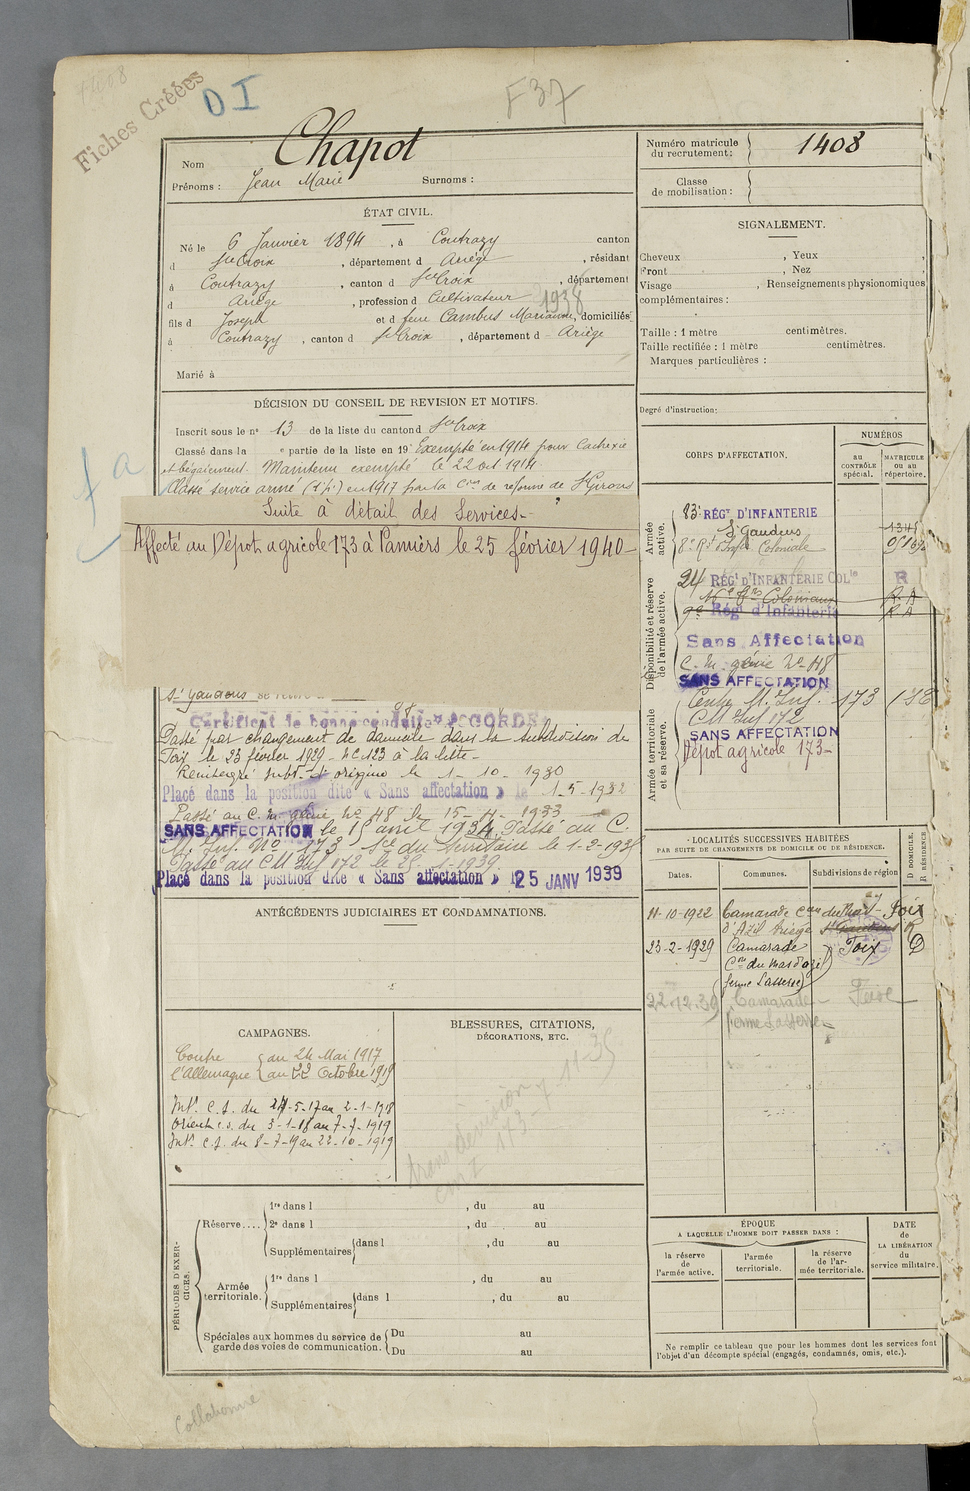 1408
Fiches Créées
DI
F37
Nom Chapot
Prénoms : Jean Marie Surnoms :
ÉTAT CIVIL.
Né le 6 Janvier 1894, à Contrazy canton
d Ste Croix, département d Ariège, résidant
à Contrazy, canton d Ste Croix, département
d Ariège, profession d Cultivateur
1938
fils d Joseph et d feue Cambus Marianne, domiciliés
à Contrazy, canton d Ste Croix, département d Ariège
Marié à
DÉCISION DU CONSEIL DE REVISION ET MOTIFS.
Inscrit sous le n° 13 de la liste du canton d Ste Croix
Classé dans la e partie de la liste en 19 Exempté en 1914 pour Cachexie
et bégaiement. Maintenu exempté le 22 oct 1914.
Classé service armé (1 p) en 1917 par la Cion de réforme de St Girons
Suite à détail des Services-
Affecté au Dépôt agricole 173 à Pamiers le 25 février 1940-
St Gaudens se retire à
Certificat de bonne conduite "ACCORDÉ"
Passé par changement de domicile dans la subdivision de
Foix le 23 février 1929 - N° 123 à la liste-
Réintégré subt. d'origine le 1-10-1930
Placé dans la position dite « Sans affectation » le 1-5-1932
Passé au C. M. génie N° 48 le 15-4-1933
SANS AFFECTATION le 15 avril 1934. Passé au C.
M. Inf. N° 173 le 1-2-1938
Passé au CM Inf 172 le 25-1-1939
Placé dans la position dite « Sans affectation » le 25 JANV 1939
ANTÉCÉDENTS JUDICIAIRES ET CONDAMNATIONS.
CAMPAGNES.
Contre l'Allemagne
du 24 Mai 1917
au 22 Octobre 1919
Int. C.S. du 24-5-17 au 2-1-1918
Orient c.s. du 3-1-18 au 7-7-1919
Int. C.S. du 8-7-19 au 22-10-1919
BLESSURES, CITATIONS,
DÉCORATIONS, ETC.
PÉRIODES D'EXERCICES.
Réserve....
1re dans l , du au
2e dans l , du au
Supplémentaires dans l , du au
Armée territoriale.
1re dans l , du au
Supplémentaires dans l , du au
Spéciales aux hommes du service de garde des voies de communication.
Du au
Du au
Collationné
Numéro matricule du recrutement: 1408
Classe de mobilisation :
SIGNALEMENT.
Cheveux , Yeux ,
Front , Nez
Visage , Renseignements physionomiques
complémentaires :
Taille : 1 mètre centimètres.
Taille rectifiée : 1 mètre centimètres.
Marques particulières :
Degré d'instruction:
CORPS D'AFFECTATION.
NUMÉROS
au CONTRÔLE spécial.
MATRICULE ou au répertoire.
Armée active.
83e RÉGT D'INFANTERIE
St Gaudens
8e Rt d'Infie Coloniale
Disponibilité et réserve de l'armée active.
24 RÉGT D'INFANTERIE COLle R
R A
9e Régt d'Infanterie R A
Sans Affectation
C. M. génie N° 48
SANS AFFECTATION
Armée territoriale et sa réserve.
Centre M. Inf. 173
CM Inf 172
SANS AFFECTATION
Dépôt agricole 173-
LOCALITÉS SUCCESSIVES HABITÉES
PAR SUITE DE CHANGEMENTS DE DOMICILE OU DE RÉSIDENCE.
Dates. Communes. Subdivisions de région
D DOMICILE. R RÉSIDENCE
11-10-1922 Camarade Con du Mas- Foix
d'Azil Ariège St Gaudens R
23-2-1929 Camarade Foix D
Con du Mas d'Azil
(ferme Lasserre)
22.12.39 Camarade- Foix
Ferme Lasserre-
ÉPOQUE
A LAQUELLE L'HOMME DOIT PASSER DANS :
la réserve de l'armée active.
l'armée territoriale.
la réserve de l'armée territoriale.
DATE DE LA LIBÉRATION du service militaire.
Ne remplir ce tableau que pour les hommes dont les services font
l'objet d'un décompte spécial (engagés, condamnés, omis, etc.).